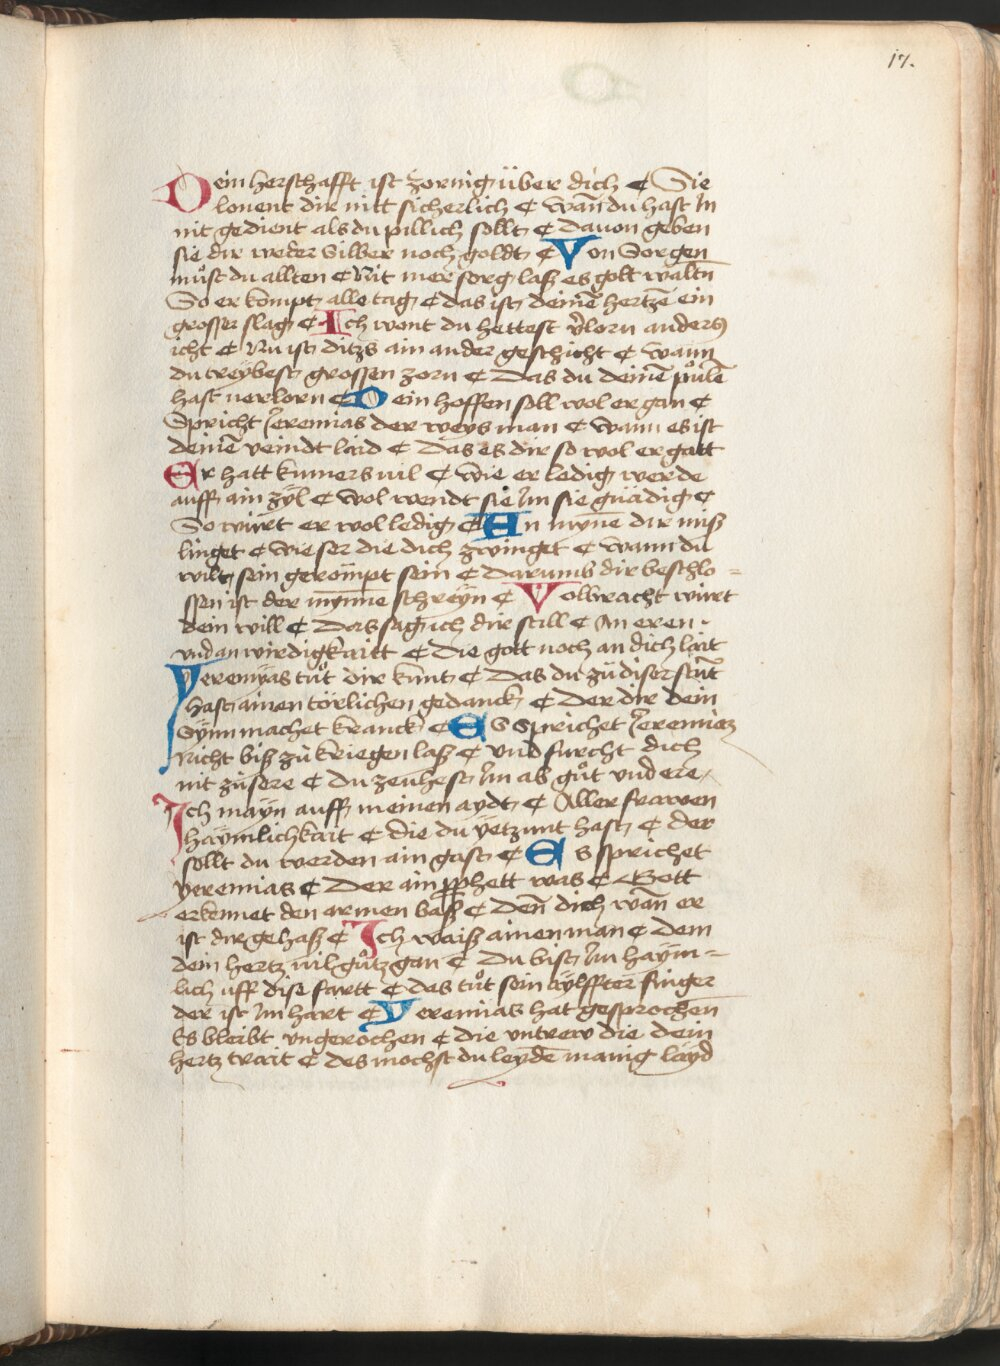 17.
Dein herschafft ist zornig über dich ¢ Sie
lonent dir nitt sicherlich ¢ wañ du hast Jn
nit gedient als du pillich sollt ¢ dauon geben
sie dir weder Silber noch goldt ¢ Von Sorgen
můst du allten ¢ Nit mer sorg laß es gott waltñ
So er kompt alle tag ¢ das ist deinē hertzē ein
grosser slag ¢ Ich wont du hettest v̄lorn anders
icht ¢ Nu ist ditzs ain ander geschicht ¢ wann
du treybest grossen zorn ¢ Das du deinē půlē
hast uerlorn ¢ Dein hoffen soll wol ergan ¢
Spricht Jeremias der weys man ¢ wann es ist
deinē veindt laid ¢ Das es dir so wol ergatt
Er hatt kumers uil ¢ wie er ledig werde
auff ain zyl ¢ wol wendt sie Jm sie gnädig ¢
So wirt er wol ledig ¢ An mynē dir miß
linget ¢ wie ser die dich zwinget ¢ wann du
wilt sein gerömpt sein ¢ Darumb dir beschlo=
ssen ist der mynne schreyn ¢ Volbracht wirt
dein will ¢ Das sag ich dir still ¢ An eren
vnd an wirdigkaitt ¢ die gott noch an dich lait
Yeremyas tůt dir kunt ¢ Das du zů diser stūt
hast ainen törlichen gedanck ¢ der dir dein
Synn machet kranck ¢ Es sprichet Jeremias
Nicht biß zů kriegen laß ¢ vnd furcht dich
nit zů sere ¢ du zeuhest Jm ab gůt vnd ere
Ich mayn auff meinen aydt ¢ Aller frawen
haymlichkait ¢ die du yetzunt hast ¢ der
sollt du werden ain gast ¢ Es sprichet
yeremias ¢ Der ain prophett was ¢ Gott
erkennet den armen baß ¢ Deñ dich wañ er
ist dir gehaß ¢ Ich waiß ainen man ¢ dem
dein hertz uil gůtz gan ¢ Du bist Jm haym=
lich uff dise fartt ¢ das tůt sein aylffter finger
der ist Jm hart ¢ Yeremias hat gesprochen
Es bleibt vngerochen ¢ die vntrew die dein
hertz trait ¢ des mochst du leydē manig layd